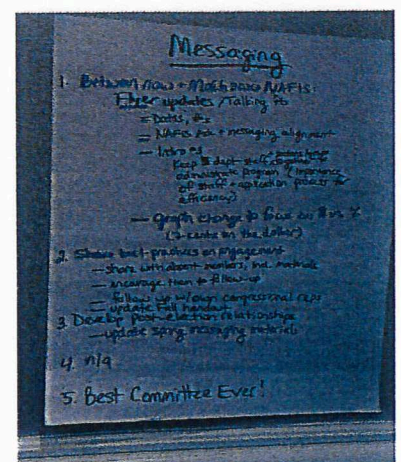 Messaging
1. Between now + March 2020 NAFIS:
Flyer updates / Talking Pts
= Dates, #s
— NAFIS Ask + messaging alignment
— Intro es
Keep dept staff
administrate program (importance
of staff + application process for
efficiency)
— Graph change to focus on # vs %
(?-cents on the dollar)
2. Share best-practices on engagement
— share with absent members, incl. materials
— encourage them to follow-up
— follow up w/own congressional reps
— update Fall handout
3. Develop post-election relationships
— update spring messaging materials
4. n/a
5. Best Committee Ever!